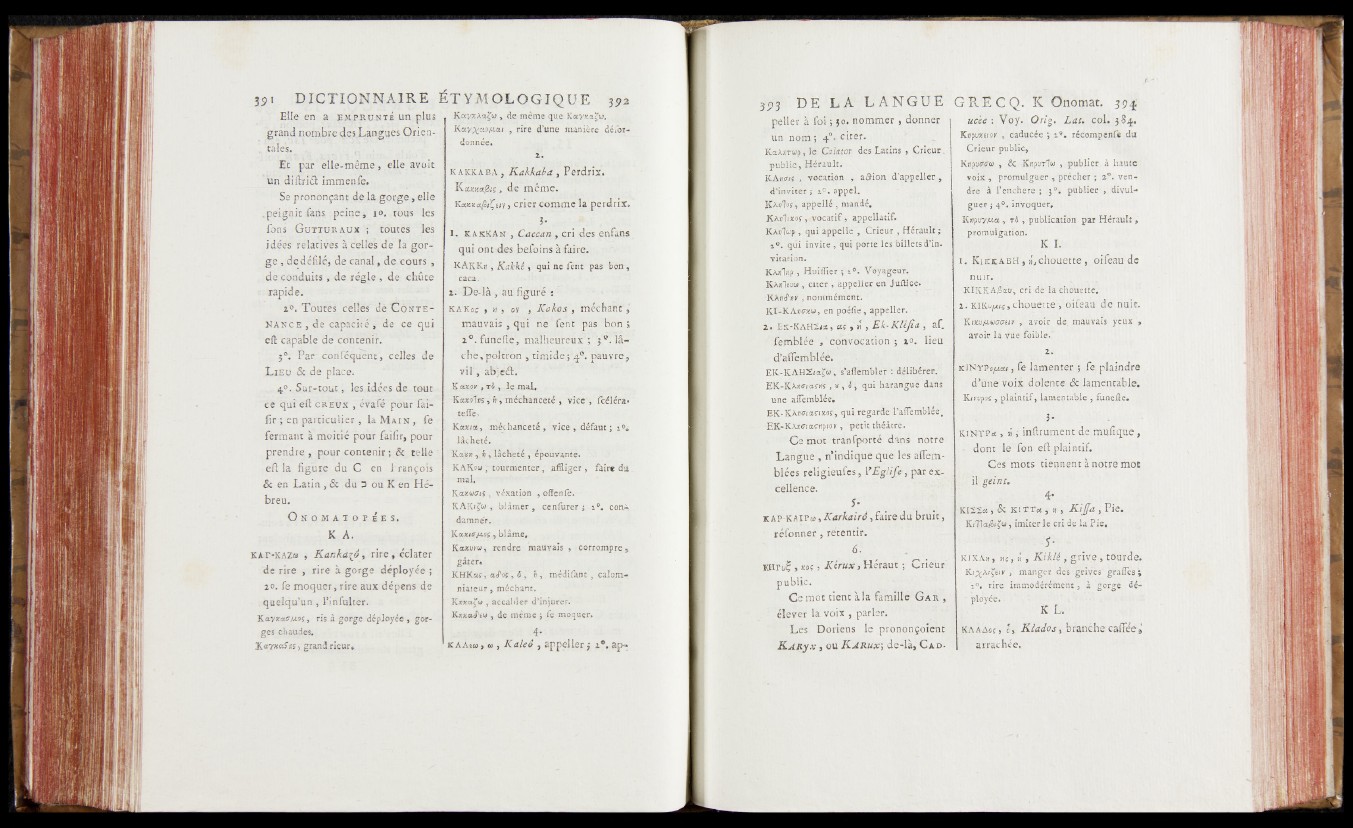 391 DICTIONNAIRE ÉTYMOLOGIQUE 392
Elle en a EMPRUNTÉ un plus
grand nombre des Langues Orien-
tales.
Et par elle-même, elle avoit
un diſtrict immenſe.
Se prononçant de la gorge, elle
peignit ſans peine, 1º. tous les
ſons GUTTURAUX ; toutes les
idées relatives à celles de la gor-
ge, de défilé, de canal, de cours,
de conduits, de régle, de chûte
rapide.
2º. Toutes celles de CONTE-
NANCE, de capacité, de ce qui
eſt capable de contenir.
3º. Par conſéquent, celles de
LIEU & de place.
4º. Sur-tout, les idées de tout
ce qui eſt CREUX, évaſé pour ſai-
ſir ; en particulier, la MAIN, ſe
fermant à moitié pour ſaiſir, pour
prendre, pour contenir ; & telle
eſt la figure du C en François
& en Latin, & du כ ou K en Hé-
breu.
ONOMATOPÉES.
K A.
ΚΑΓ-ΧΑΖω, Kankazô, rire, éclater
de rire, rire à gorge déployée ;
2º. ſe moquer, rire aux dépens de
quelqu'un, l'inſulter.
Καγχασμος, ris à gorge déployée, gor-
ges chaudes.
Καγχαςης, grand rieur.
Καγχλαζω, de même que Καγχαζω.
Καγχαομαι, rire d'une maniere déſor-
donnée.
2.
ΚΑΚΚΑΒΑ, Kakkaba, Perdrix.
Κακκαβις, de même.
Κακκαβιζειν, crier comme la perdrix.
3.
1. ΚΑΚΚΑΝ, Caccan, cri des enfans
qui ont des beſoins à faire.
ΚΑΚΚη, Kakké, qui ne ſent pas bon,
caca.
2. De-là, au figuré :
ΚΑΚος, η, ον, Kakos, méchant,
mauvais, qui ne ſent pas bon ;
2º. funeſte, malheureux ; 3º. lâ-
che, poltron, timide ; 4º. pauvre,
vil, abject.
Κακον, τὸ, le mal.
Κακοτης, ἡ, méchanceté, vice, ſcéléra-
teſſe.
Κακια, méchanceté, vice, défaut ; 2º.
lâcheté.
Κακη, ἡ, lâcheté, épouvante.
ΚΑΚοω, tourmenter, affliger, faire du
mal.
Κακωσις, véxation, offenſe.
ΚΑΚιζω, blâmer, cenſurer ; 2º. con-
damner.
Κακισμος, blâme.
Κακυνω, rendre mauvais, corrompre,
gâter.
ΚΗΚας, αδος, ὁ, ἡ, médiſant, calom-
niateur, méchant.
Κηκαζω, accabler d'injures.
Κηκαδιω, de même ; ſe moquer.
4.
ΚΑΛεω, ω, Kaleô, appeller ; 2º. ap-
393 DE LA LANGUE GRECQ. K Onomat. 394
peller à ſoi ; 3º. nommer, donner
un nom ; 4º. citer.
Καλητωρ, le Calator des Latins, Crieur
public, Hérault.
ΚΛησις, vocation, action d'appeller,
d'inviter ; 2º. appel.
ΚΛητος, appellé, mandé.
ΚΛητικος, vocatif, appellatif.
ΚΛητωρ, qui appelle, Crieur, Hérault ;
2º. qui invite, qui porte les billets d'in-
vitation.
ΚΛητηρ, Huiſſier ; 2º. Voyageur.
ΚΛητευω, citer, appeller en Juſtice.
ΚΛηδην, nommément.
ΚΙ-ΚΛησκω, en poéſie, appeller.
2. ΕΚ-ΚΛΗΣια, ας, ἡ, Ek-Kléſia, aſ-
ſemblée, convocation ; 2º. lieu
d'aſſemblée.
ΕΚ-ΚΛΗΣιαζω, s'aſſembler : délibérer.
ΕΚ-Κλησιαςης, ου, ὁ, qui harangue dans
une aſſemblée.
ΕΚ-ΚΛησιαςικος, qui regarde l'aſſemblée.
ΕΚ-ΚΛησιαςηριον, petit théâtre.
Ce mot tranſporté dans notre
Langue, n'indique que les aſſem-
blées religieuſes, l'Egliſe, par ex-
cellence.
5.
ΚΑΡ-ΚΑΙΡω, Karkairô, faire du bruit,
réſonner, retentir.
6.
ΚΗΡυξ, κος, Kérux, Héraut ; Crieur
public.
Ce mot tient à la famille GAR,
élever la voix, parler.
Les Doriens le prononçoient
KARyx, ou KARux ; de-là, CAD-
ucée : Voy. Orig. Lat. col. 384.
Κηρυκιον, caducée ; 2º. récompenſe du
Crieur public,
Κηρυσσω, & Κηρυττω, publier à haute
voix, promulguer, prêcher ; 2º. ven-
dre à l'enchere ; 3º. publier, divul-
guer ; 4º. invoquer.
Κηρυγμα, τὸ, publication par Hérault,
promulgation.
K I.
1. ΚΙΚΚΑΒΗ, ἡ, chouette, oiſeau de
nuit.
ΚΙΚΚΑβαυ, cri de la chouette.
2. ΚΙΚυμις, chouette, oiſeau de nuit.
Κικυμωσσειν, avoir de mauvais yeux,
avoir la vue foible.
2.
ΚΙΝΥΡομαι, ſe lamenter ; ſe plaindre
d'une voix dolente & lamentable.
Κινυρος, plaintif, lamentable, funeſte.
3.
ΚΙΝΥΡα, ἡ, inſtrument de muſique,
dont le ſon eſt plaintif.
Ces mots tiennent à notre mot
il geint.
4.
ΚΙΣΣα, & ΚΙΤΤα, ἡ, Kiſſa, Pie.
Κιτταβιζω, imiter le cri de la Pie.
5.
ΚΙΧΛη, ης, ἡ, Kiklé, grive, tourde.
Κιχλιζειν, manger des grives graſſes ;
2º. rire immodérément, à gorge dé-
ployée.
K L.
ΚΛΑΔος, ὁ, Klados, branche caſſée,
arrachée.